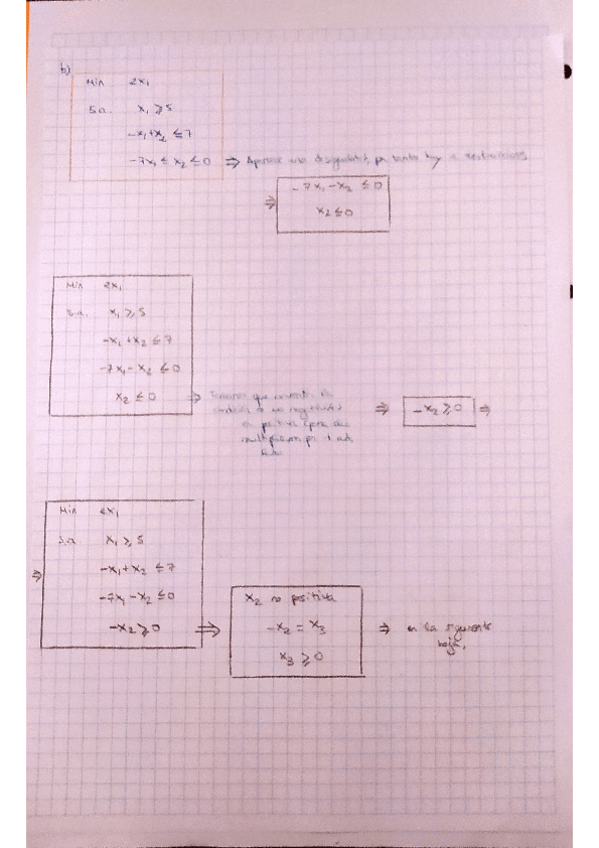 b)
Min 2x₁
s.a. x₁ ≥ 5
-x₁+x₂ ≤ 7
-7x₁ ≤ x₂ ≤ 0 ⇒ Aparece una desigualdad, por tanto hay restricciones
⇒ -7x₁ -x₂ ≤ 0
x₂ ≤ 0
Min 2x₁
s.a. x₁ ≥ 5
-x₁ + x₂ ≤ 7
-7x₁ - x₂ ≤ 0
x₂ ≤ 0 ⇒ que la
de no negatividad
en positiva para ello
multiplicamos por -1
⇒ -x₂ ≥ 0 ⇒
Min 2x₁
s.a. x₁ ≥ 5
⇒ -x₁ + x₂ ≤ 7
-7x₁ - x₂ ≤ 0
-x₂ ≥ 0 ⇒
x₂ no positiva
-x₂ = x₃
x₃ ≥ 0
⇒ en la siguiente
hoja.